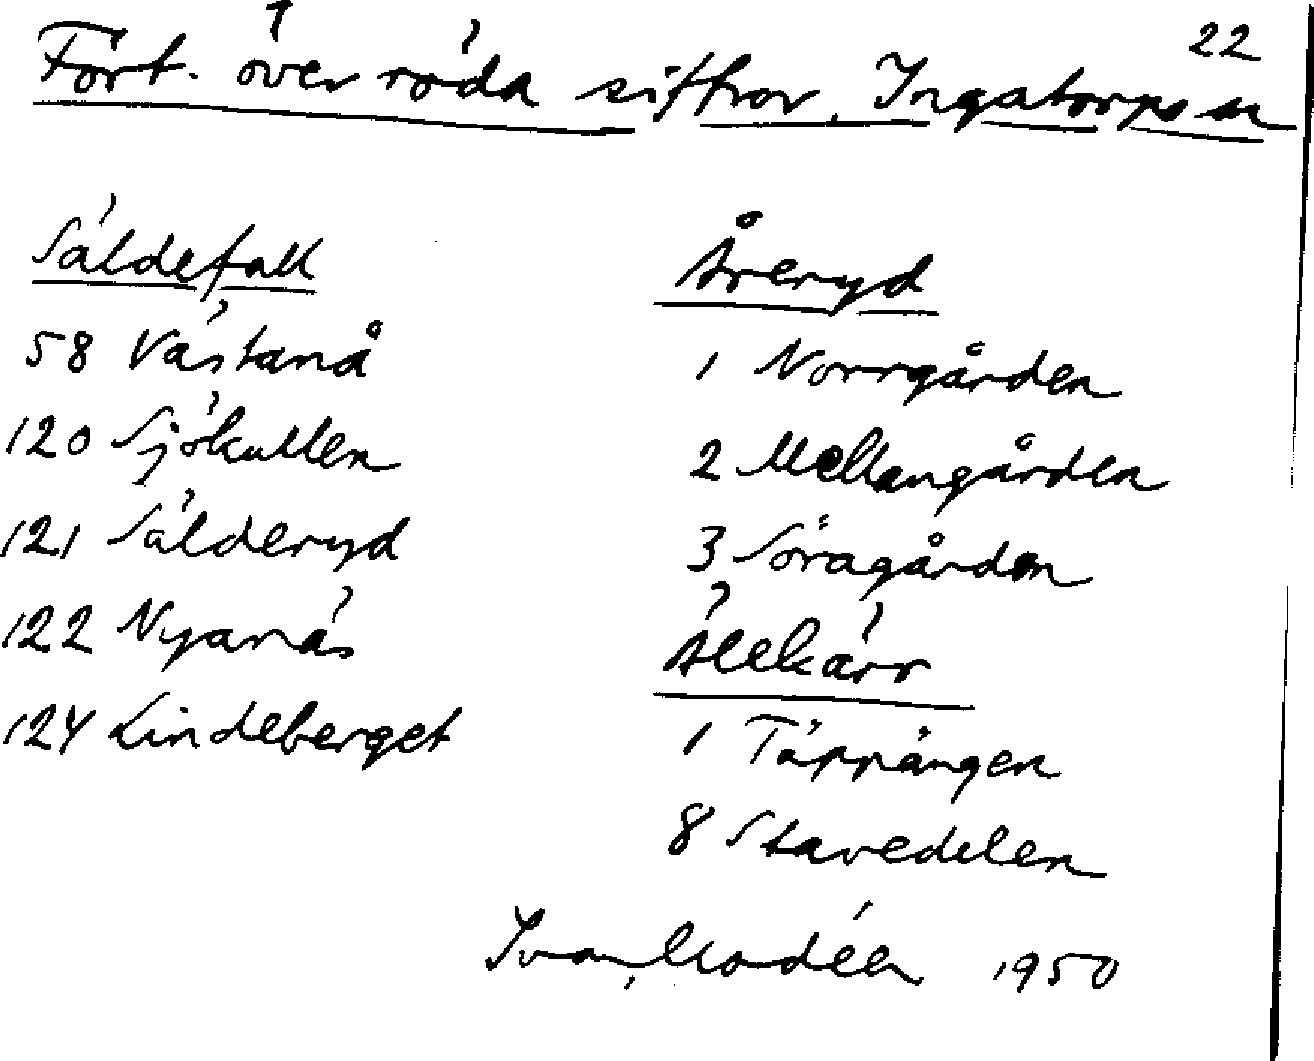 22
Fört. över röda siffror, Ingatorps sn
Säldefall
58 Västanå
120 Sjökullen
121 Sälderyd
122 Nyanäs
124 Lindeberget
Åreryd
1 Norrgården
2 Mellangården
3 Söragården
Älekärr
1 Täppängen
8 Stavedelen
Ivar Modéer 1950